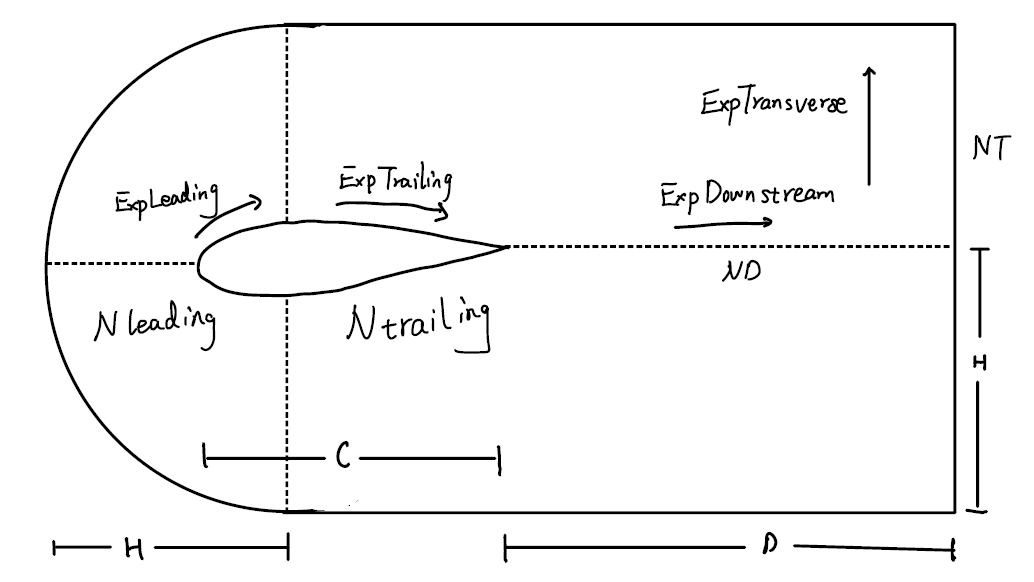 ExpTransverse
NT
ExpLeading
ExpTrailing
ExpDownstream
ND
Nleading
Ntrailing
H
C
H
D